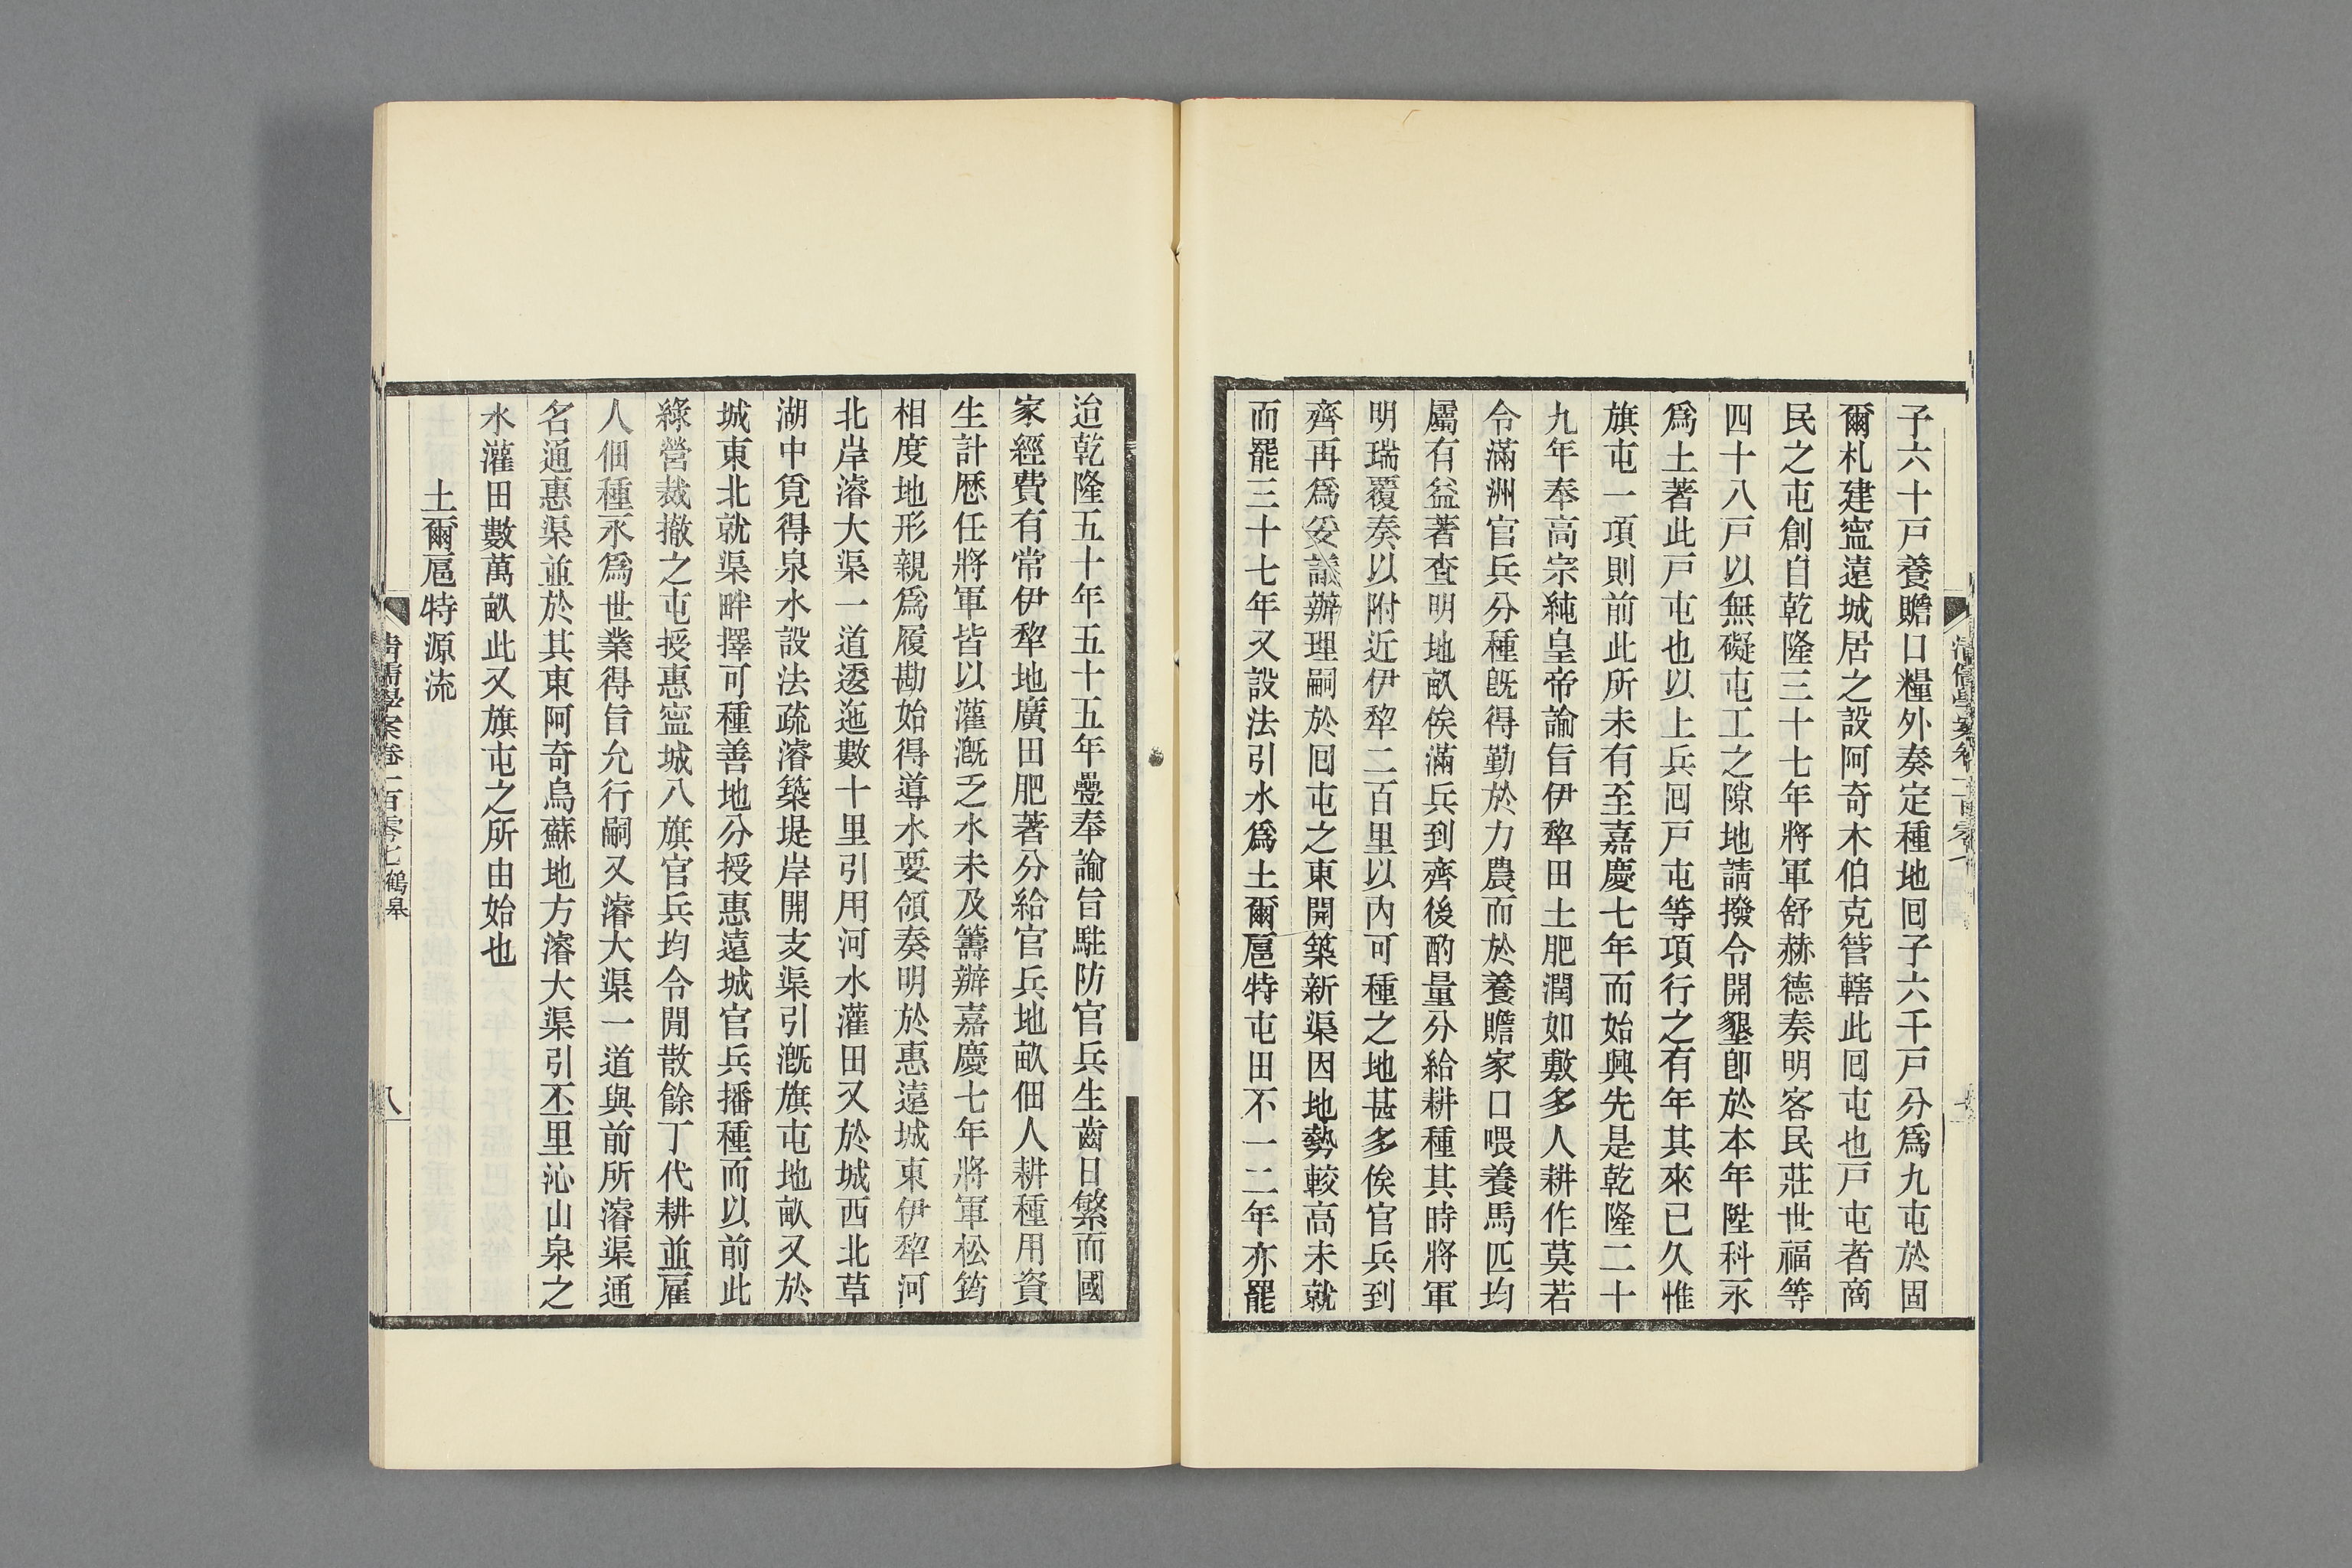 子六十戸養贍口糧外奏定種地囘子六千戸分爲九屯於固
爾札建寍遠城居之設阿奇木伯克管轄此囘屯也戸屯者商
民之屯創自乾隆三十七年將軍舒赫德奏明客民莊世福等
四十八戸以無礙屯工之隙地請撥令開墾卽於本年陞科永
爲土著此戸屯也以上兵囘戸屯等項行之有年其來已久惟
旗屯一項則前此所未有至嘉慶七年而始興先是乾隆二十
九年奉高宗純皇帝諭旨伊犂田土肥潤如敷多人耕作莫若
令滿洲官兵分種旣得勤於力農而於養贍家口喂養馬匹均
屬有益著查明地畝俟滿兵到齊後酌量分給耕種其時將軍
明瑞覆奏以附近伊犂二百里以內可種之地甚多俟官兵到
齊再爲妥議辦理嗣於囘屯之東開築新渠因地勢較高未就
而罷三十七年又設法引水爲土爾扈特屯田不一二年亦罷
迨乾隆五十年五十五年疊奉諭旨駐防官兵生齒日繁而國
家經費有常伊犂地廣田肥著分給官兵地畝佃人耕種用資
生計歷任將軍皆以灌漑乏水未及籌辦嘉慶七年將軍松筠
相度地形親爲履勘始得導水要領奏明於惠遠城東伊犂河
北岸濬大渠一道逶迤數十里引用河水灌田又於城西北草
湖中覓得泉水設法疏濬築堤岸開支渠引漑旗屯地畝又於
城東北就渠畔擇可種善地分授惠遠城官兵播種而以前此
綠營裁撤之屯授惠寍城八旗官兵均令閒散餘丁代耕並雇
人佃種永爲世業得旨允行嗣又濬大渠一道與前所濬渠通
名通惠渠並於其東阿奇烏蘇地方濬大渠引丕里沁山泉之
水灌田數萬畝此又旗屯之所由始也
土爾扈特源流
清儒學案卷一百零七鶴皋
八